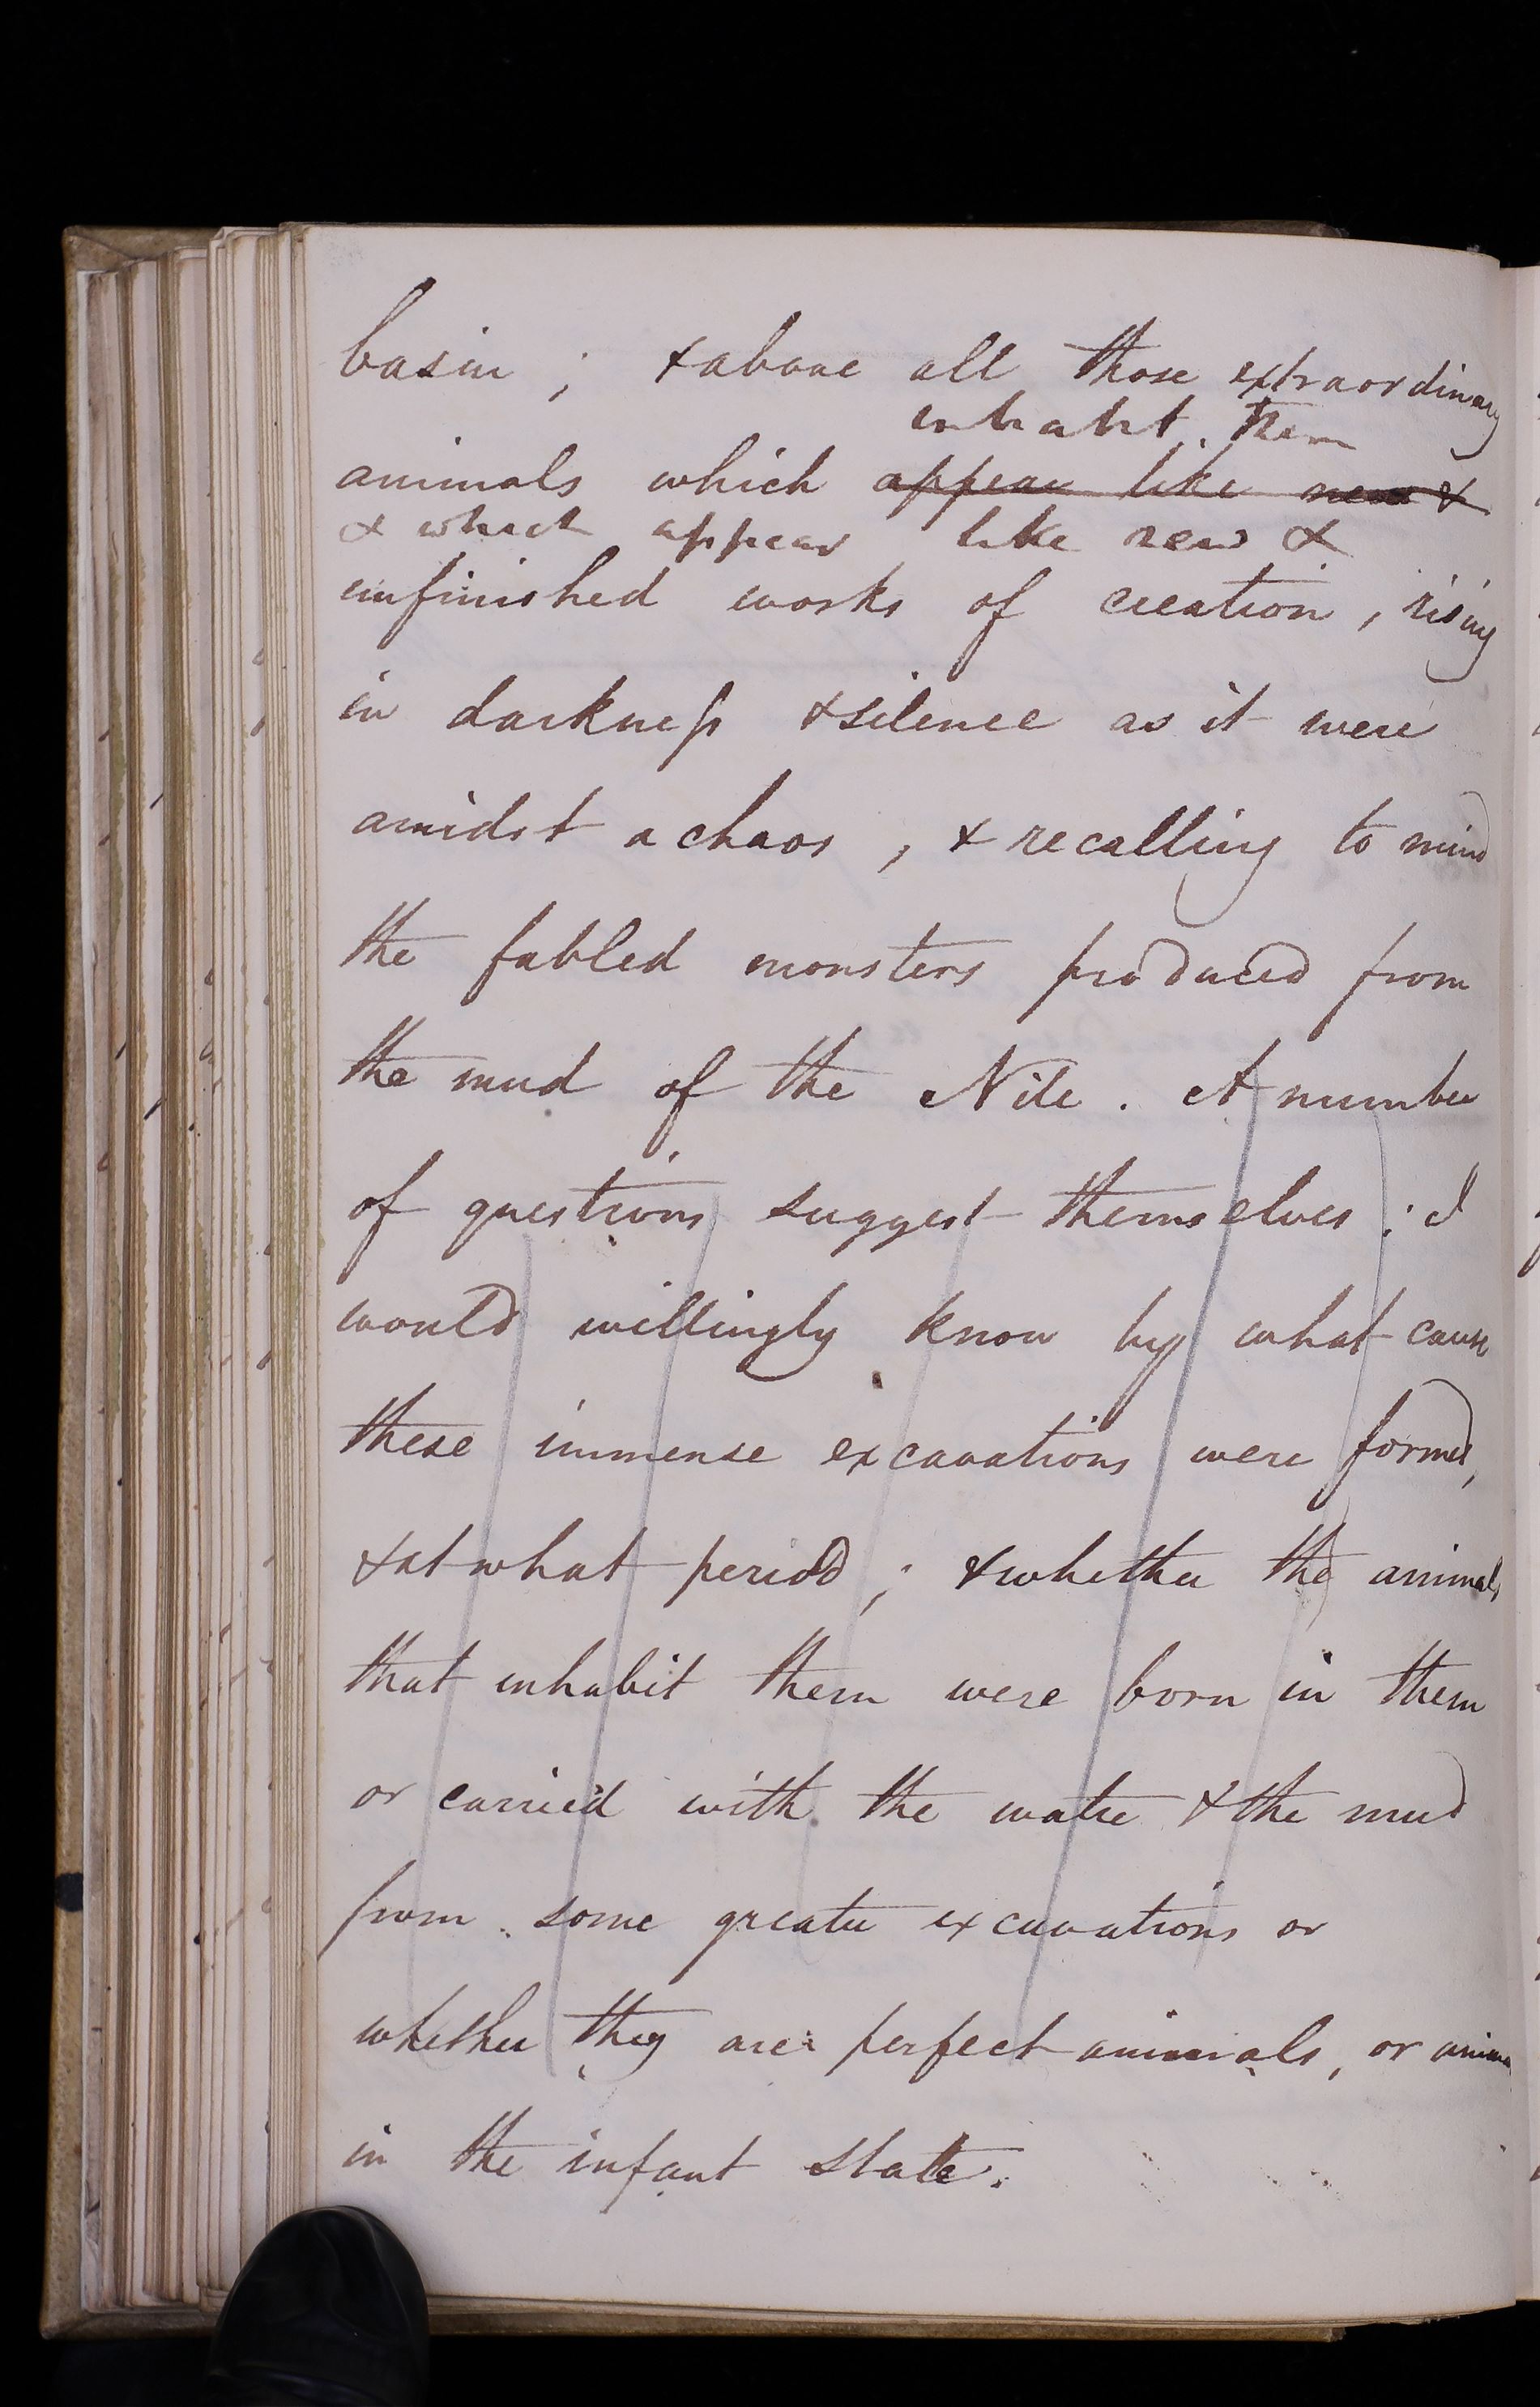 basin ; & above all those extraordinary
inhabit them
animals which appear like new &
& which appear like new &
unfinished works of creation , rising
in darkness & silence as it were
amidst a chaos , & recalling to mind
the fabled monsters produced from
the mud of the Nile . A number
of questions suggest themselves : I
would willingly know by what cause
these immense excavations were formed,
& at what period ; & whether the animals
that inhabit them were born in them
or carried with the water & the mud
from some greater excavations or
whether they are perfect animals , or
in the infant state .